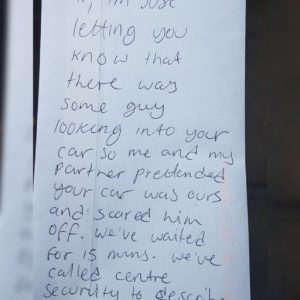 Hi, I'm just
letting you
know that
there was
some guy
looking into your
car so me and my
partner pretended
your car was ours
and scared him
off. we've waited
for 15 mins. we've
called centre
security to describe